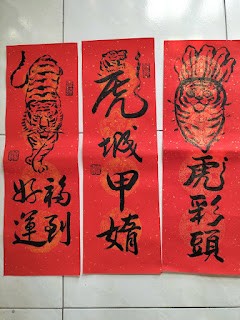 福到
好運
虎城甲媠
虎彩頭